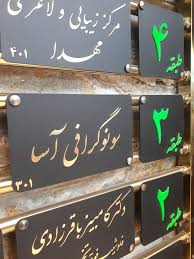 مرکز زیبایی و لاغری
مهدا
۴۰۱
۴
طبقه
سونوگرافی آسا
۳۰۱
۳
طبقه
دکتر کامبیز باقرزادی
۲
طبقه